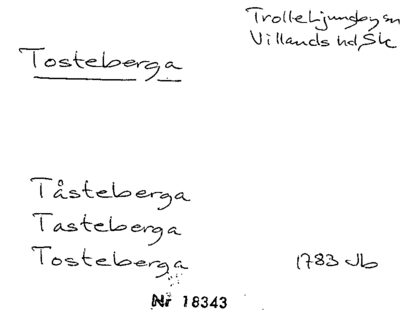 Trolle-Ljungby sn
Villands hd, Sk
Tosteberga
Tåsteberga
Tasteberga
Tosteberga 1783 Jb
Nr 18343